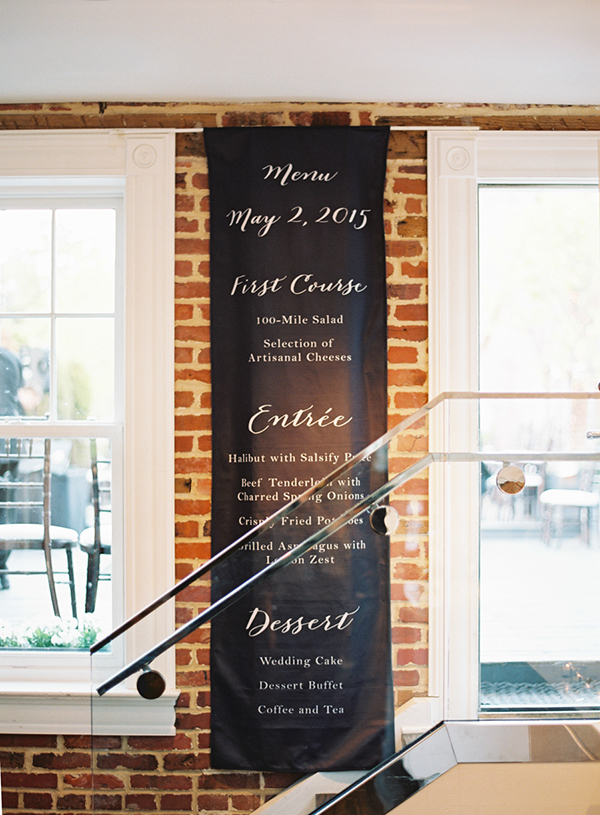 Menu
May 2, 2015
First Course
100-Mile Salad
Selection of
Artisanal Cheeses
Entrée
Halibut with Salsify
Beef Tenderloin with
Charred Spring Onions
Crispy Fried Potatoes
Grilled Asparagus with
Lemon Zest
Dessert
Wedding Cake
Dessert Buffet
Coffee and Tea